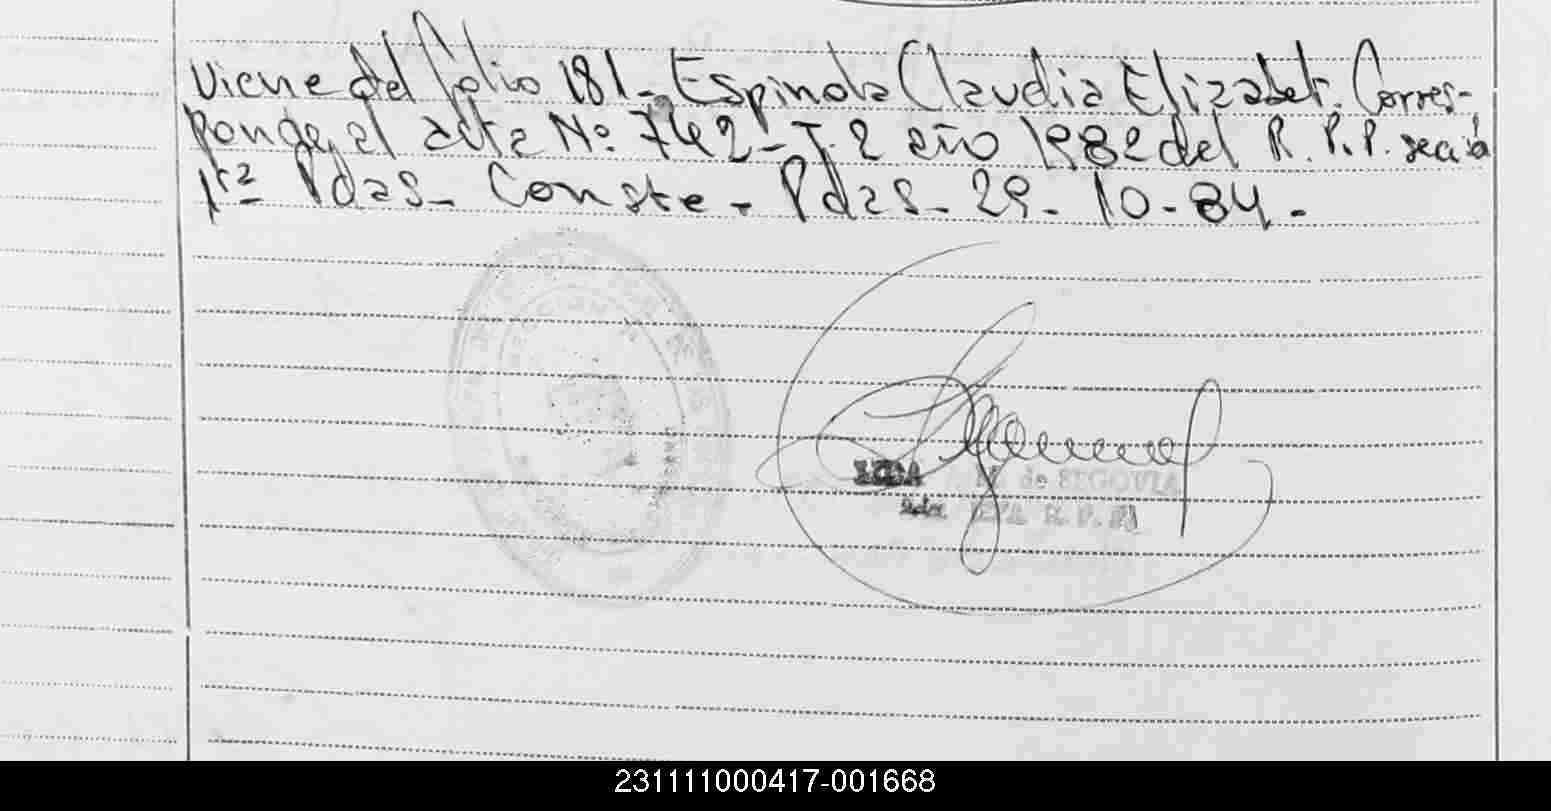 Viene del folio 181_ Espinola Claudia Elizabet. Corres-
ponde, el acta No: 742_ T. 2 año 1982 del R. P. P. sección
1ra Pdas_ Conste - Pdas_ 29_ 10-84.-
de SEGOVIA
R. P. P.
231111000417-001668